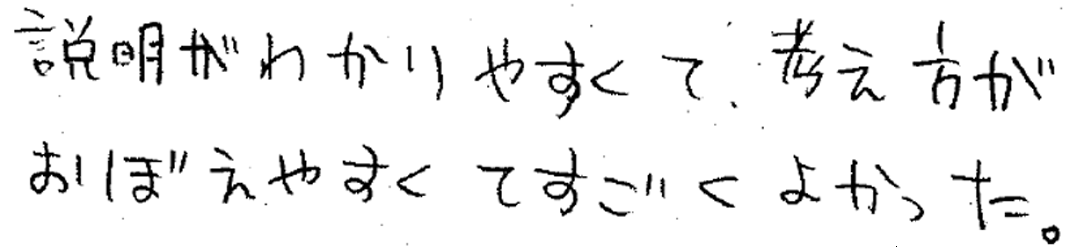 説明がわかりやすくて、考え方が
おぼえやすくてすごくよかった。